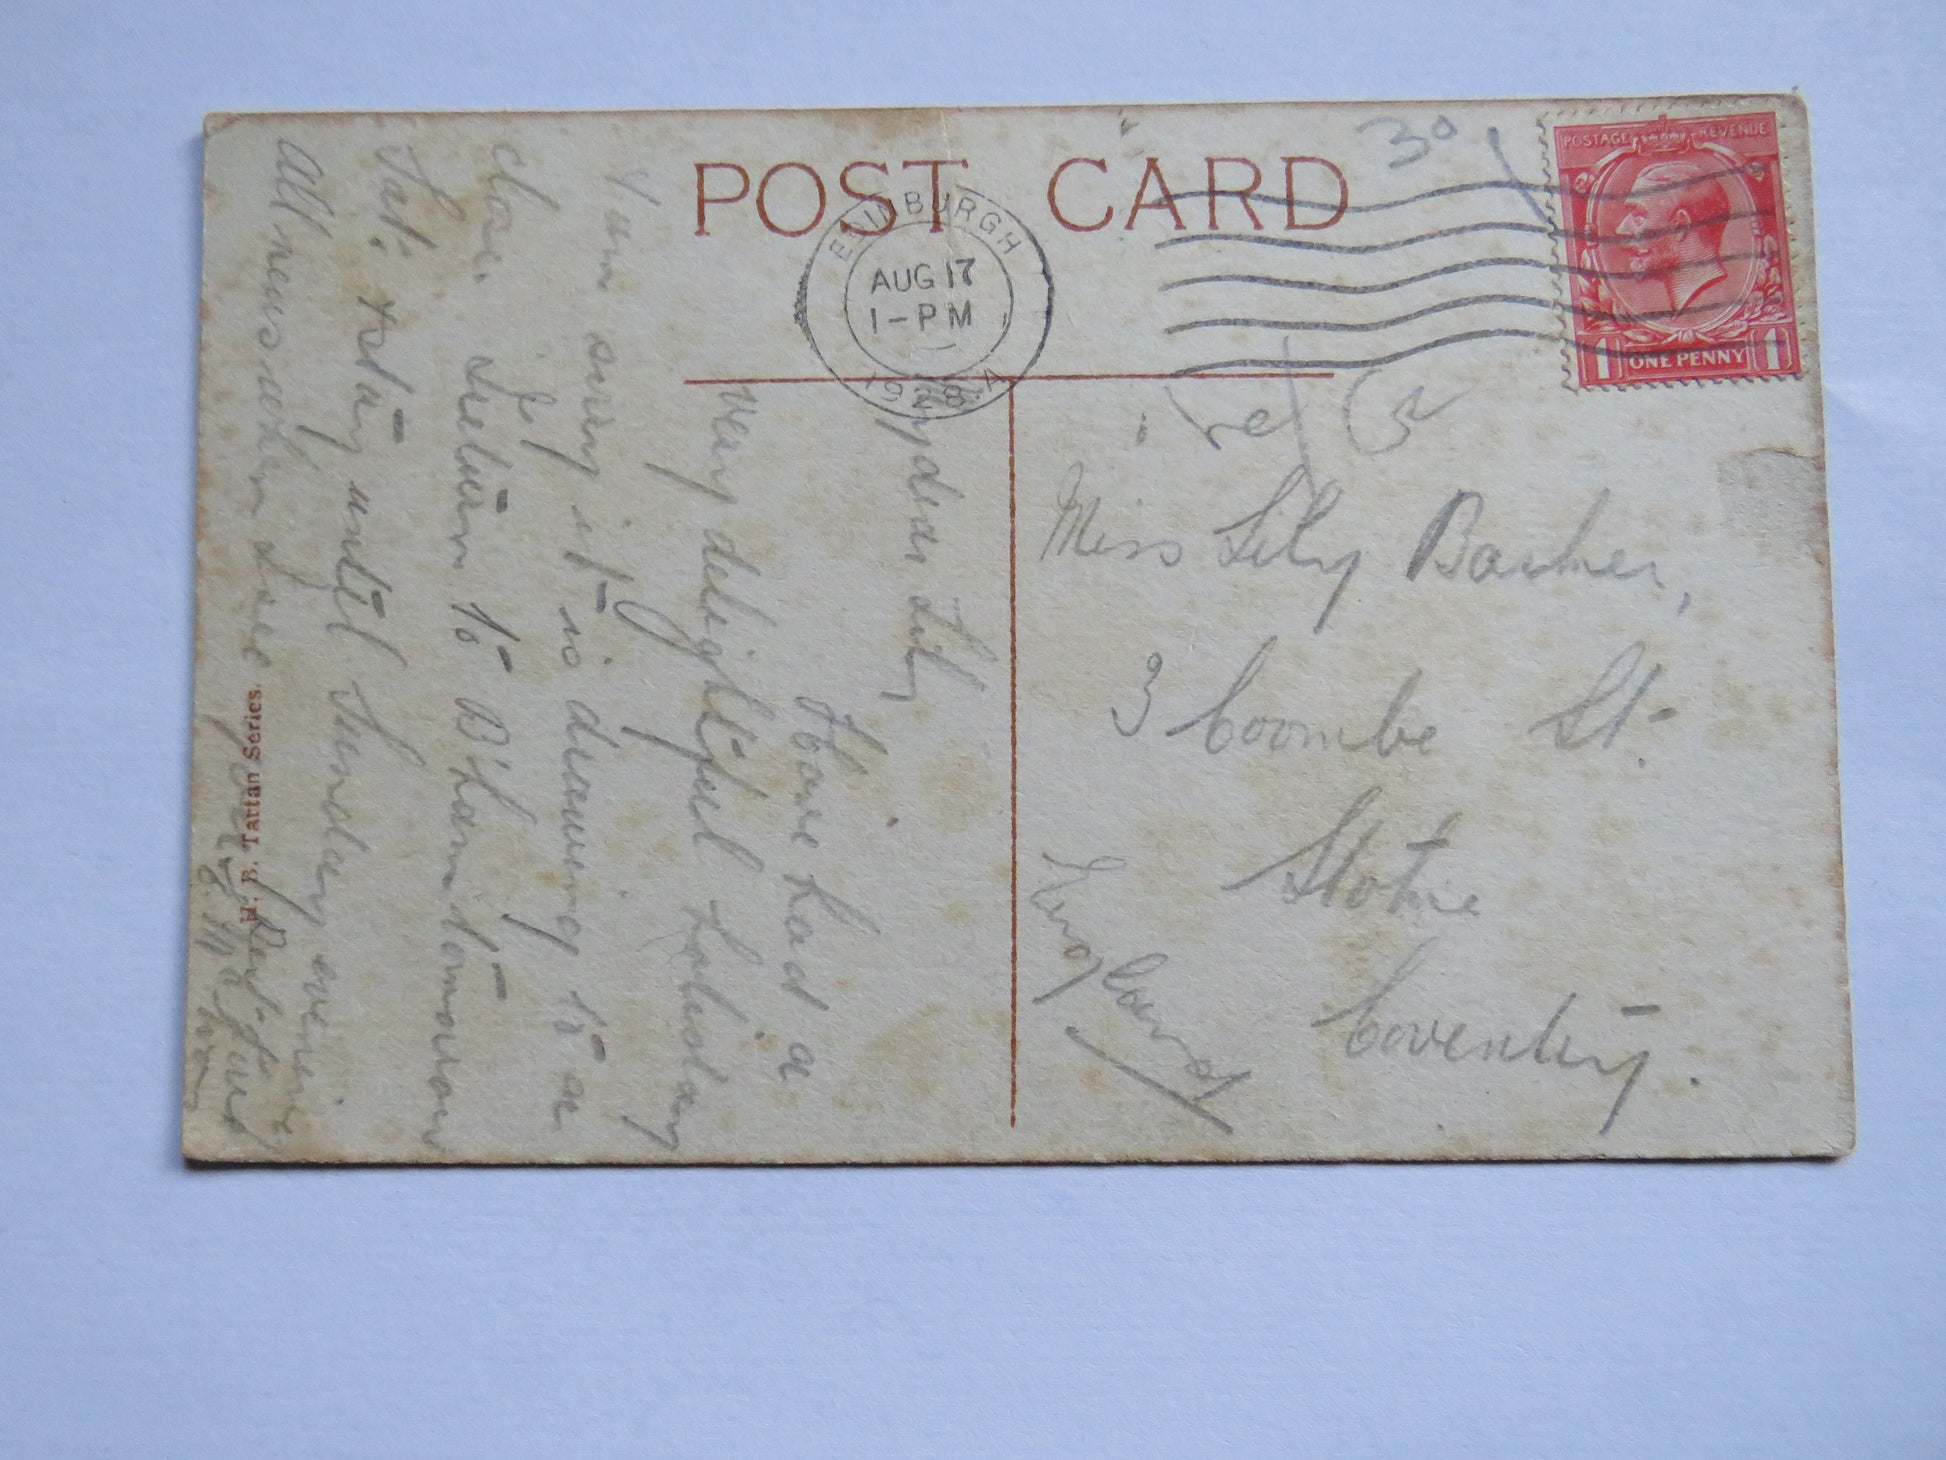 POST CARD
30
EDINBURGH
AUG 17
1-PM
1928
POSTAGE REVENUE
1 ONE PENNY 1
Miss Lily Barker,
3 Coombe St.
Stoke
Coventry.
England
My dear Lily
Have had a
very delightful holiday
I am sorry it is drawing to a
close. Return to B'ham tomorrow
Sat: rotary until Sunday evening
All news when I see
H. B. Tartan Series.